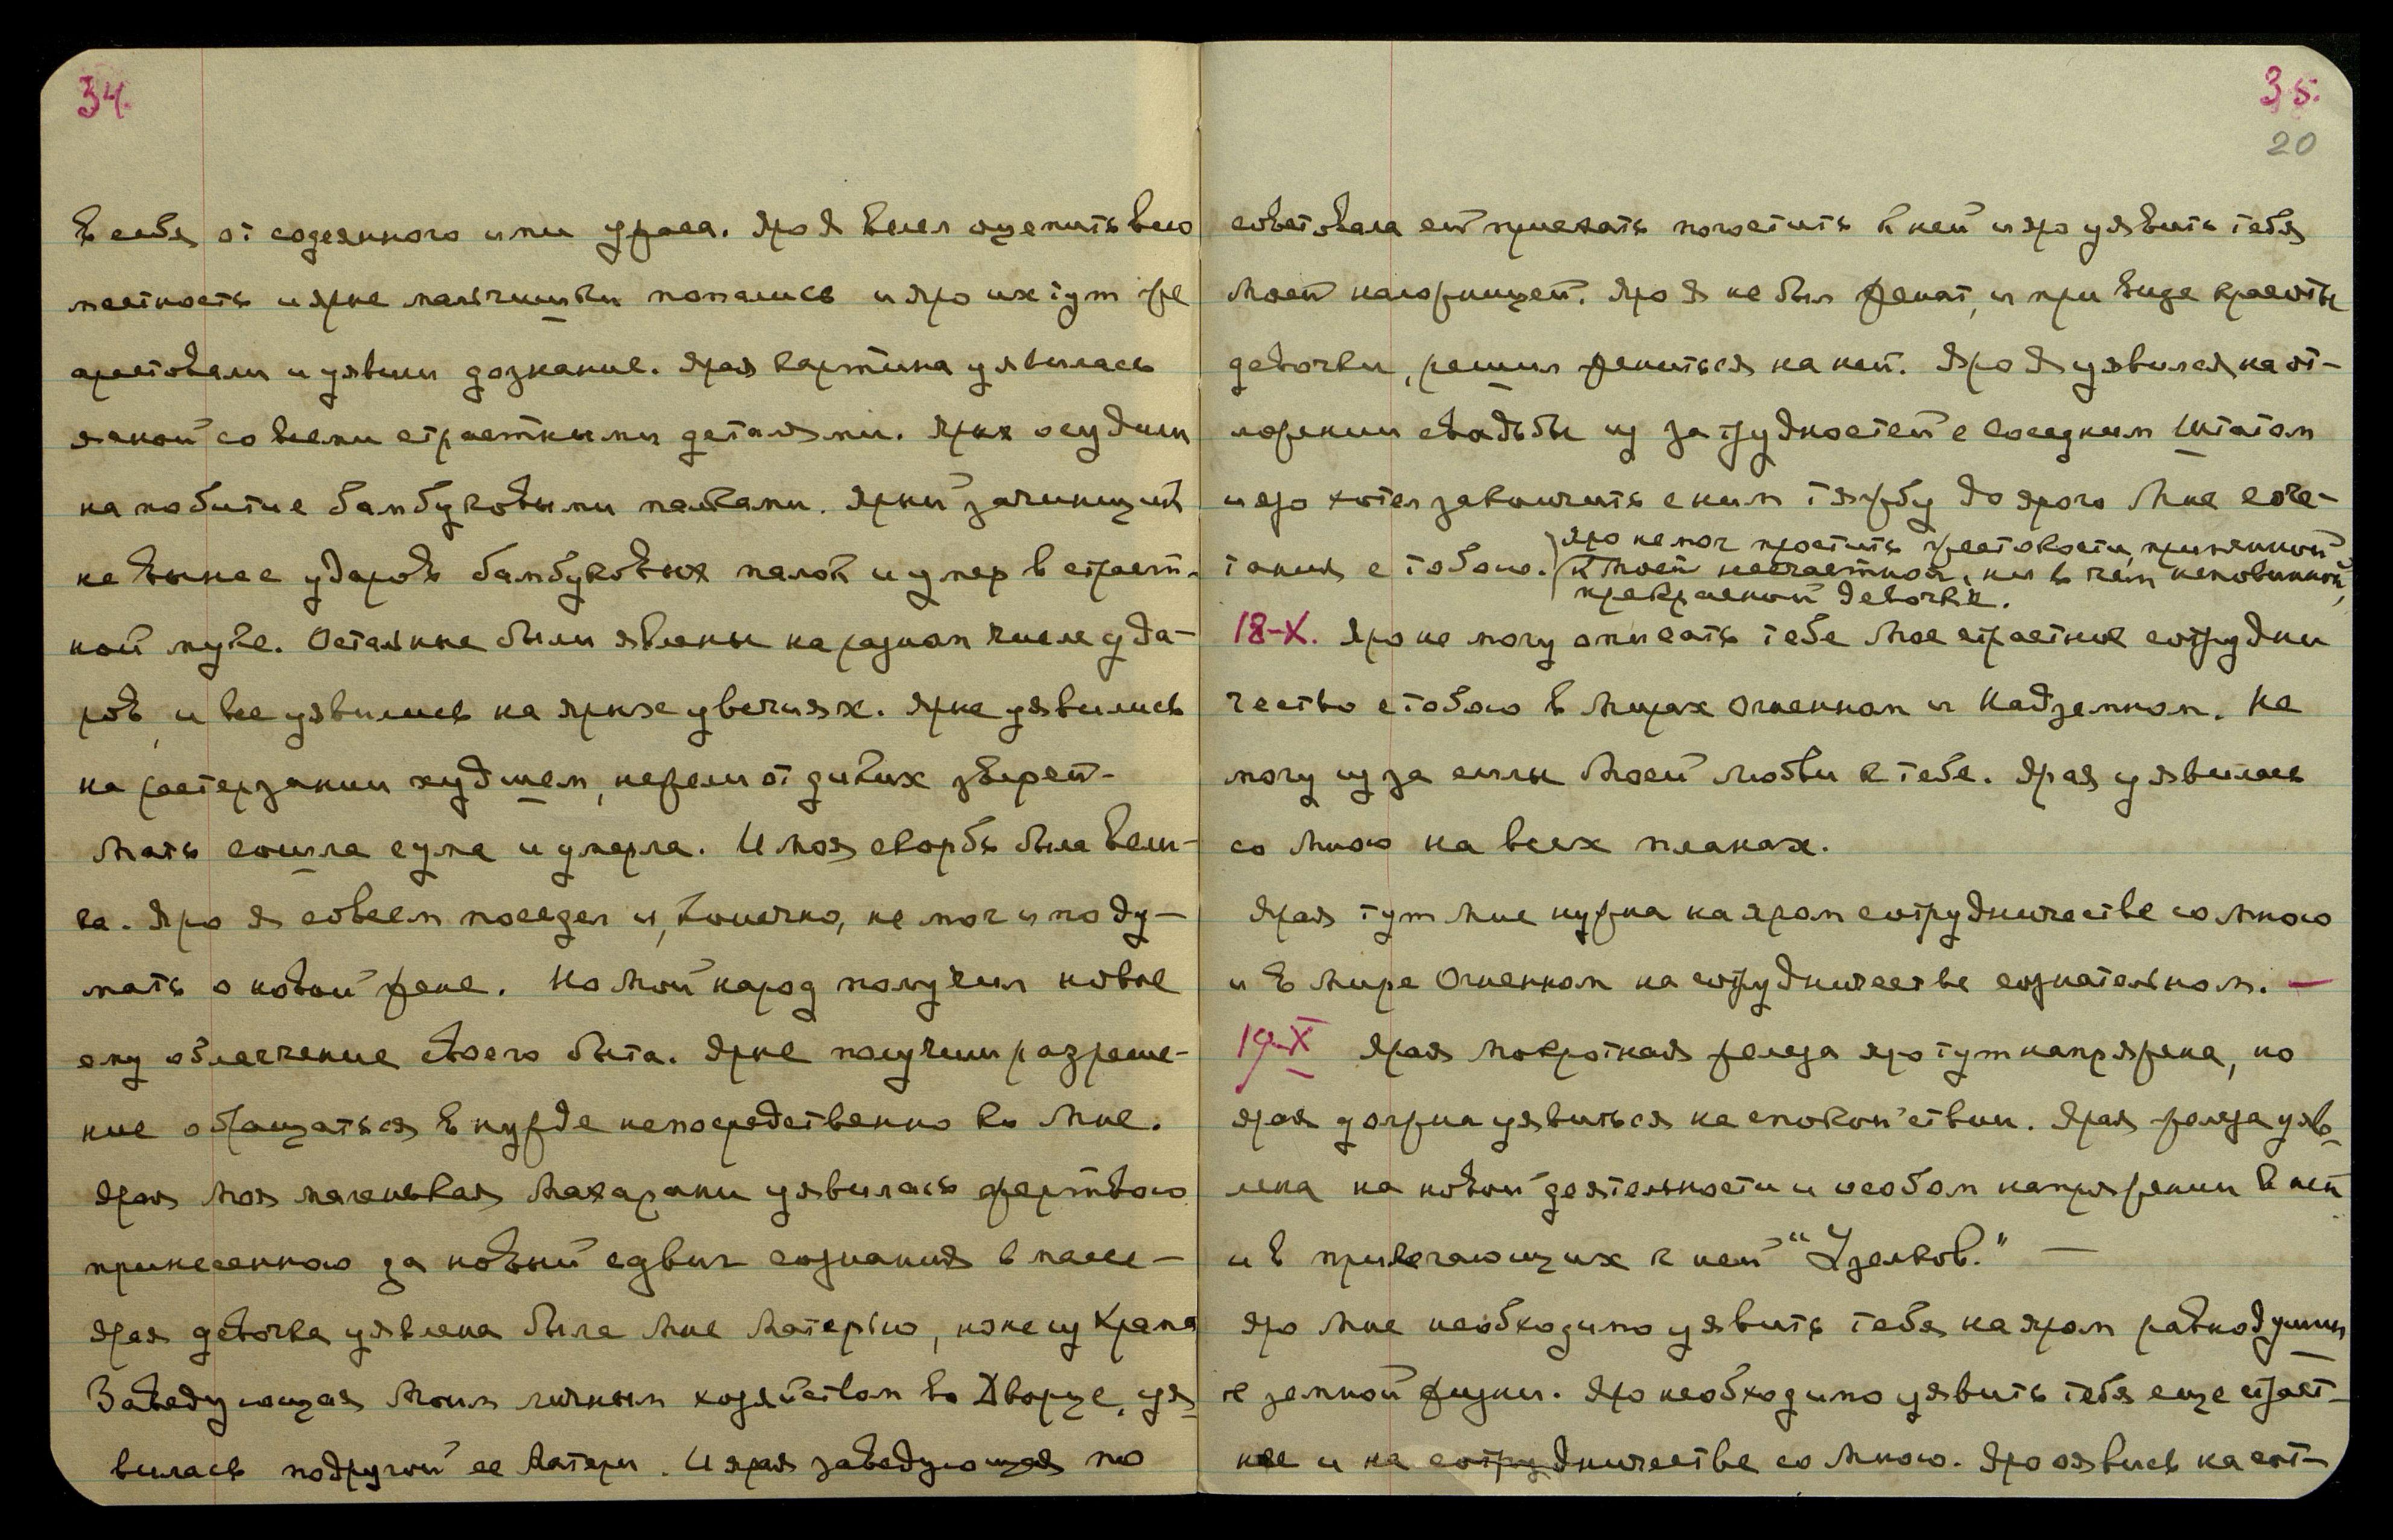 34.
в себя от содеянного ими ужаса. Яро Я велел оцепить всю
местность и ярые мальчишки попались и яро их тут же
арестовали и уявили дознание. Ярая картина уявилась
ясной со всеми страстными деталями. Ярых осудили
на побитие бамбуковыми палками. Ярый зачинщик
не вынес ударов бамбуковых палок и умер в страст-
ной муке. Остальные были явлены на разном числе уда-
ров, и все уявились на ярых увечиях. Ярые уявились
на растерзании худшем, нежели от диких зверей-
Мать сошла с ума и умерла. И моя скорбь была вели-
ка. Яро Я совсем поседел и, конечно, не мог и поду-
мать о новой жене. Но Мой народ получил новое
ему облегчение своего быта. Ярые получили разреше-
ние обращаться в нужде непосредственно ко Мне.
Ярая Моя маленькая Махарани уявилась жертвою
принесенною за новый сдвиг сознания в массе-
Ярая девочка уявлена была Мне Матерью, ноне из Храма
Заведующая Моим личным хозяйством во Дворце, уя-
вилась подругой ее Матери. И ярая заведующая по
35.
20
советовала ей приехать погостить к ней и яро уявить тебя
Моей наложницей. Яро Я не был женат, и при виде красоты
девочки, решил жениться на ней. Яро Я уявился на от-
ложении свадьбы из за трудностей с соседним Штатом
и яро хотел закончить с ним тяжбу до ярого Мне соче-
тания с тобою.
Яро не мог простить жестокости, примененной
к Моей несчастной, ни в чем неповинной,
прекрасной девочке.
18-X. Яро не могу описать тебе Мое страстное сотрудни
чество с тобою в Мирах Огненном и Надземном. Не
могу из за силы Моей любви к тебе. Ярая уявилась
со Мною на всех планах.
Ярая тут Мне нужна на яром сотрудничестве со Мною
и в Мире Огненном на сотрудничестве сознательном. —
19-X Ярая Мокротная железа яро тут напряжена, но
ярая должна уявиться на спокойствии. Ярая железа уяв-
лена на новой деятельности и особом напряжении в ней
и в прилегающих к ней "Узелков." —
Яро Мне необходимо уявить тебя на яром равнодушии
к земной жизни. Яро необходимо уявить тебя еще страст-
нее и на сотрудничестве со Мною. Яро явись на сот-